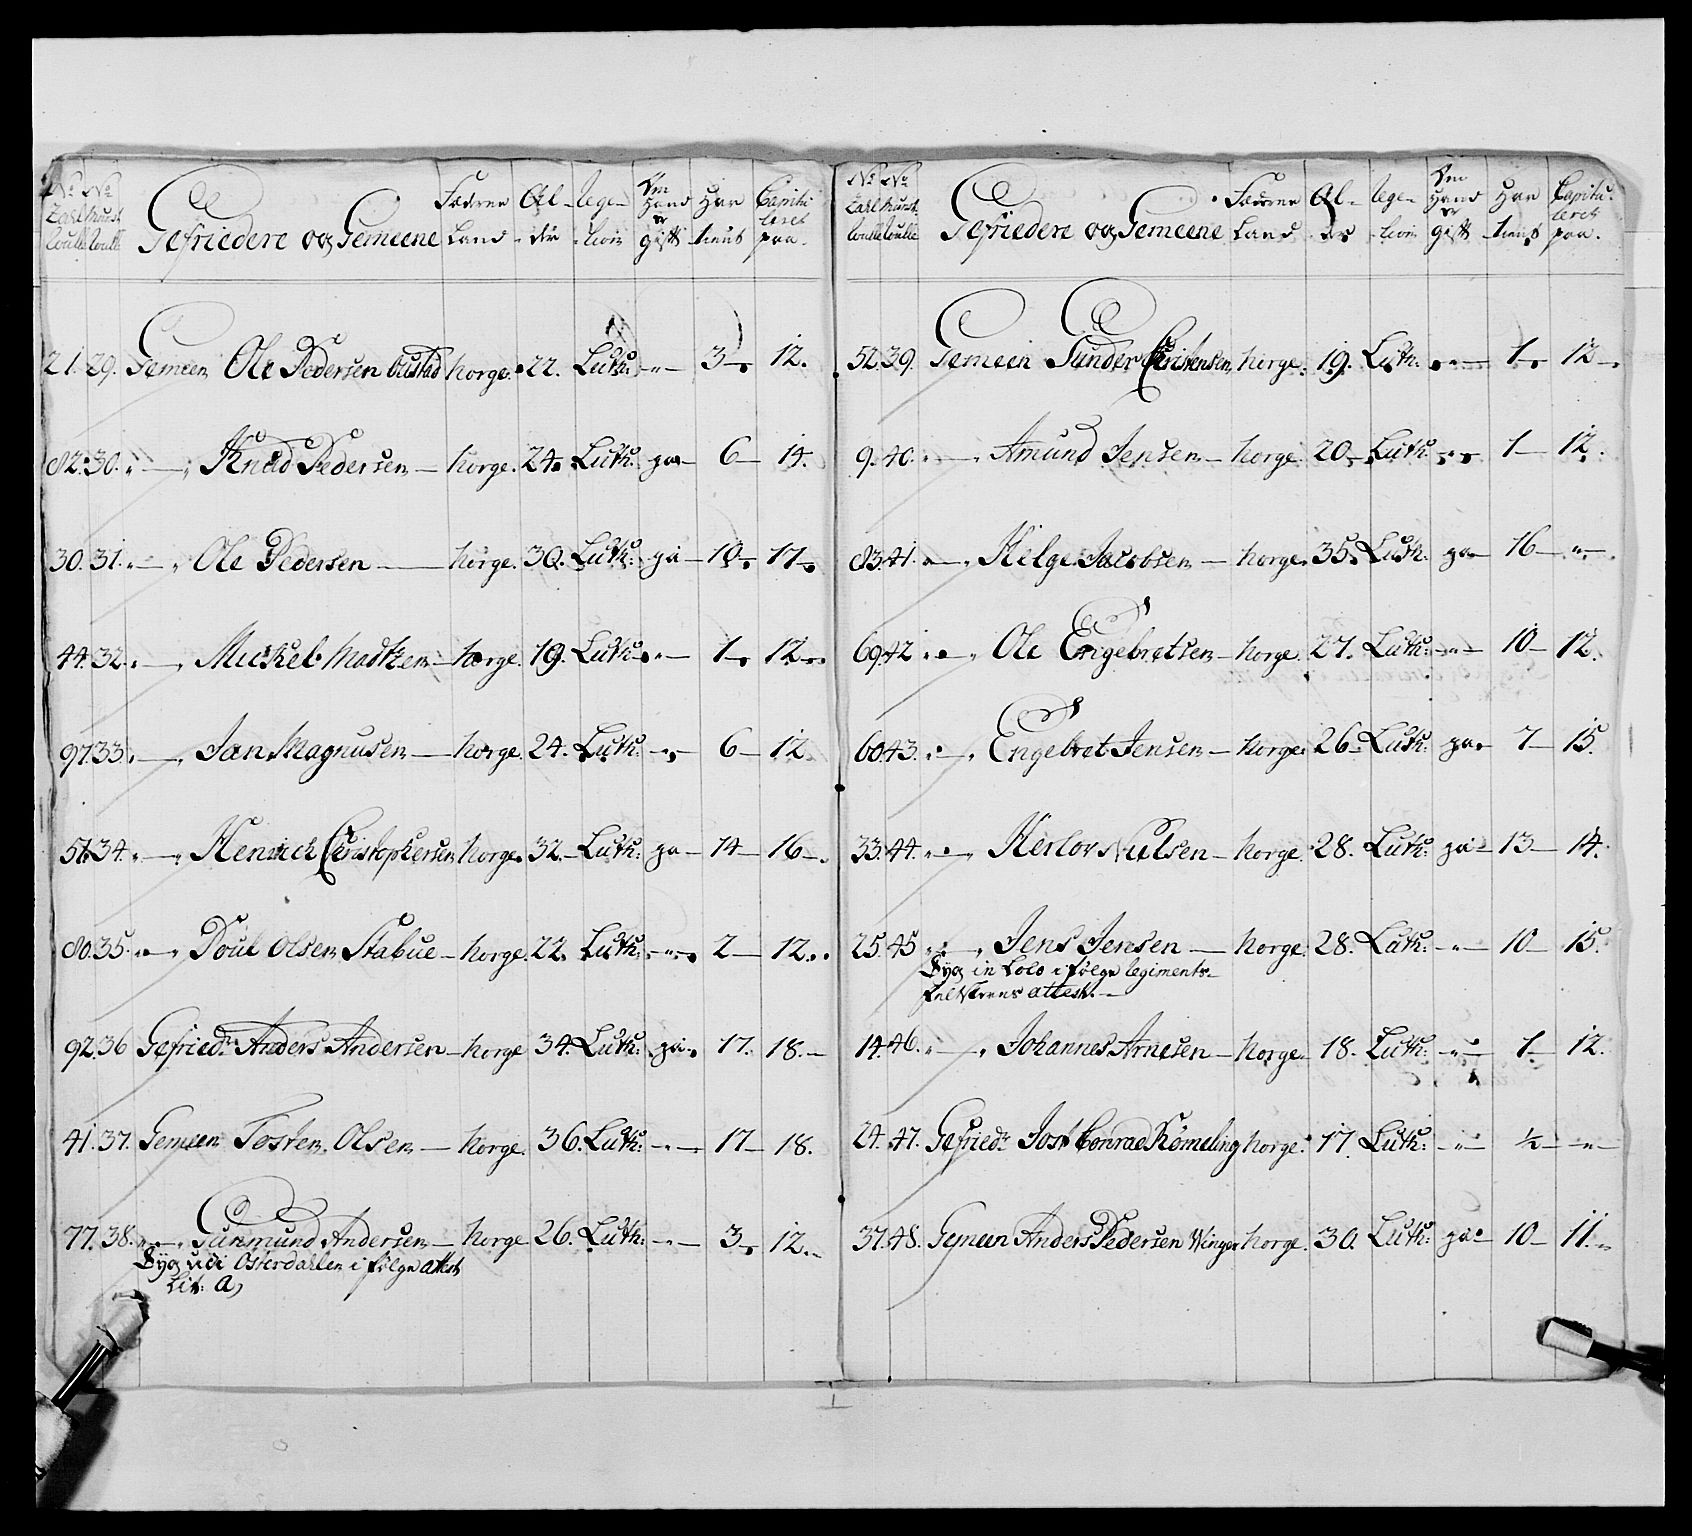 No No Gefriedere og Gemeene Fædrene Land Al- der Relegion Om Hand er gift Har tient Capitu- leret paa
21. 29. Gemeen Ole Pedersen Bustad Norge. 22. Luth: -"- 3 12.
82. 30. " Knud Pedersen Norge. 24. Luth: ja 6 14.
30. 31. " Ole Pedersen Norge. 30. Luth: ja 10 17
44. 32. " Mickel Madtzen Norge 19. Luth: -"- 1 12
97. 33. " Jan Magnusen Norge. 24. Luth: -"- 6 12
51. 34. " Henrich Christophersen Norge. 32. Luth: ja 14 16
80. 35. " Poul Olsen Stabue Norge 22. Luth: -"- 2 12
92. 36 Gefriedr Anders Andersen Norge 34. Luth: ja 17. 18.
41. 37. Gemeen Tosten Olsen Norge. 36. Luth: -"- 17 18.
77. 38. " Gunmund Andersen Norge 26. Luth: -"- 3 12.
Syg udi Østerdahlen i følge attest
Lit: A)
No No Gefriedere og Gemeene Fædrene Land Al- der Relegion Om Hand er gift Har tient Capitu- leret paa.
52. 39. Gemeen Gunder Christensen Norge. 19. Luth: -"- 1 12
9. 40. " Amund Jensen Norge. 20 Luth: -"- 1 12.
83. 41. " Helge Jacobsen Norge. 35. Luth: ja 16 -"-
69. 42 " Ole Engebretsen Norge. 27. Luth: -"- 10 12.
60. 43. " Engebret Jensen Norge. 26. Luth: ja 7 15.
33. 44. " Herlov Nielsen Norge. 28. Luth: ja 13 14.
25. 45 " Jens Jensen Norge. 28. Luth: -"- 10 15.
Syg in Loco i følge Regiments-
feltskerens attest.
14. 46. " Johannes Arnesen Norge. 18. Luth: -"- 1 12.
24. 47. Gefriedr Jost Conrad Rømeling Norge. 17. Luth: -"- ½ -"-
37. 48. Gemeen Anders Pedersen Winger Norge. 30. Luth: ja 10 11.